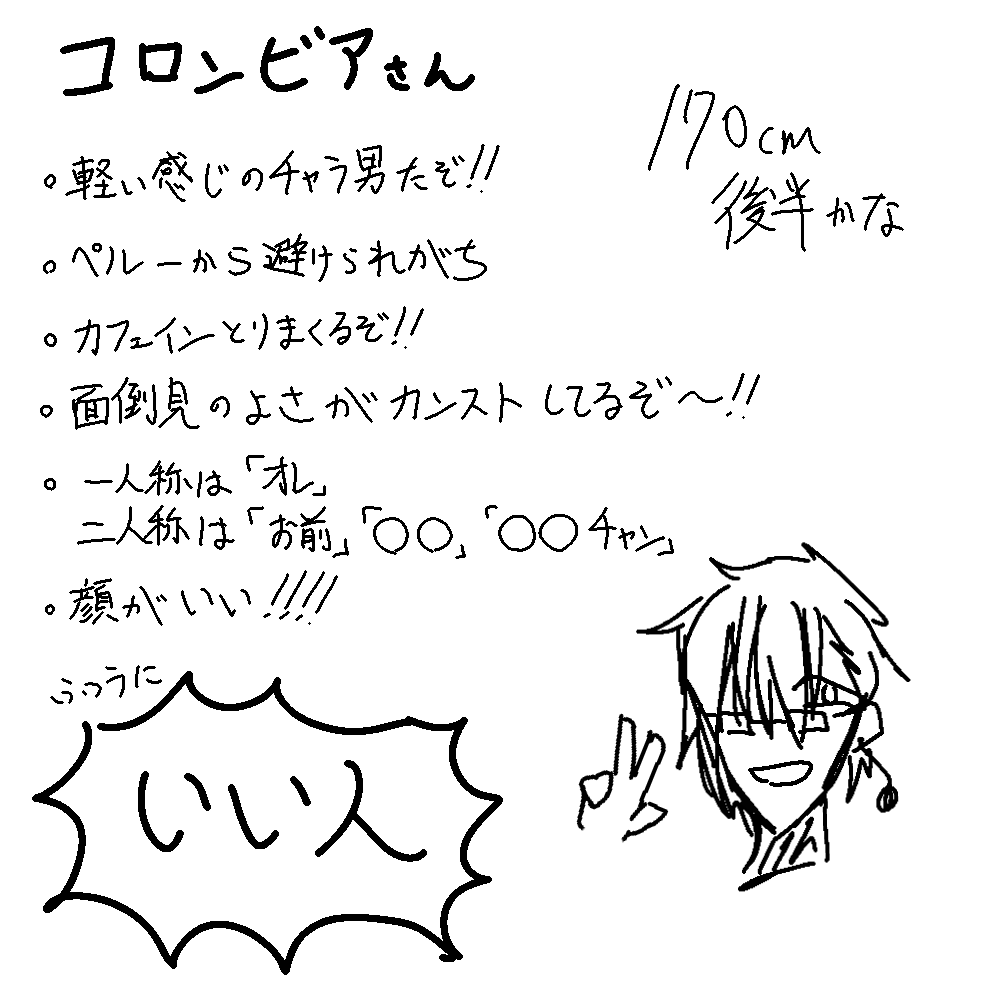 コロンビアさん
170cm
後半かな
○軽い感じのチャラ男だぞ!!
○ペルーから避けられがち
○カフェインとりまくるぞ!!
○面倒見のよさがカンストしてるぞ〜!!
○一人称は「オレ」
二人称は「お前」「○○」「○○チャン」
○顔がいい!!!!
ふつうに
いい人